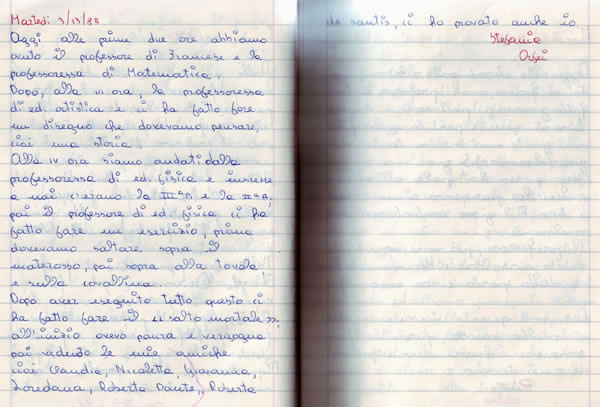 Martedì 3/12/85
Oggi alle prime due ore abbiamo
avuto il professore di Francese e la
professoressa di Matematica.
Dopo, alla III ora, la professoressa
di ed. artistica e ci ha fatto fare
un disegno che dovevamo pensare,
cioè una storia.
Alla IV ora siamo andati dalla
professoressa di ed. fisica e insieme
a noi c'erano la IIIªB e la IIªA,
poi il professore di ed. fisica ci ha
fatto fare un esercizio, prima
dovevamo saltare sopra il
materosso, poi sopra alla tavola
e sulla cavallina.
Dopo aver eseguito tutto questo ci
ha fatto fare il «salto mortale»,
all'inizio avevo paura e vergogna
poi vedendo le mie amiche
cioè Claudia, Nicoletta, Giovanna,
Loredana, Roberta Dante, Roberta
de santis, ci ho provato anche io
Stefania
Orfei